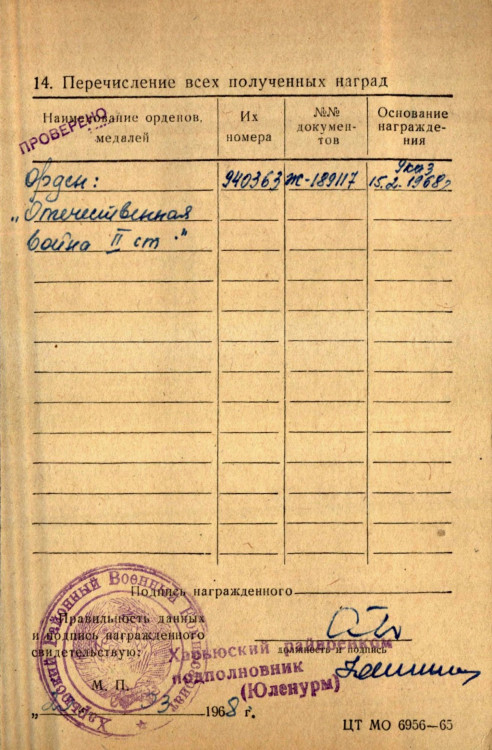 14. Перечисление всех полученных наград
Наименование орденов, медалей
Их номера
№№ документов
Основание награждения
ПРОВЕРЕНО
Орден: 940363 Ж-189117 Указ 15.2.1968г
„Отечественная
война II ст."
Подпись награжденного
Правильность данных
и подпись награжденного
свидетельствую:
должность и подпись
Харьюский райвоенком
подполковник
(Юленурм)
Харьюский Районный Военный Комиссариат
М. П.
03 1968 г.
ЦТ МО 6956—65